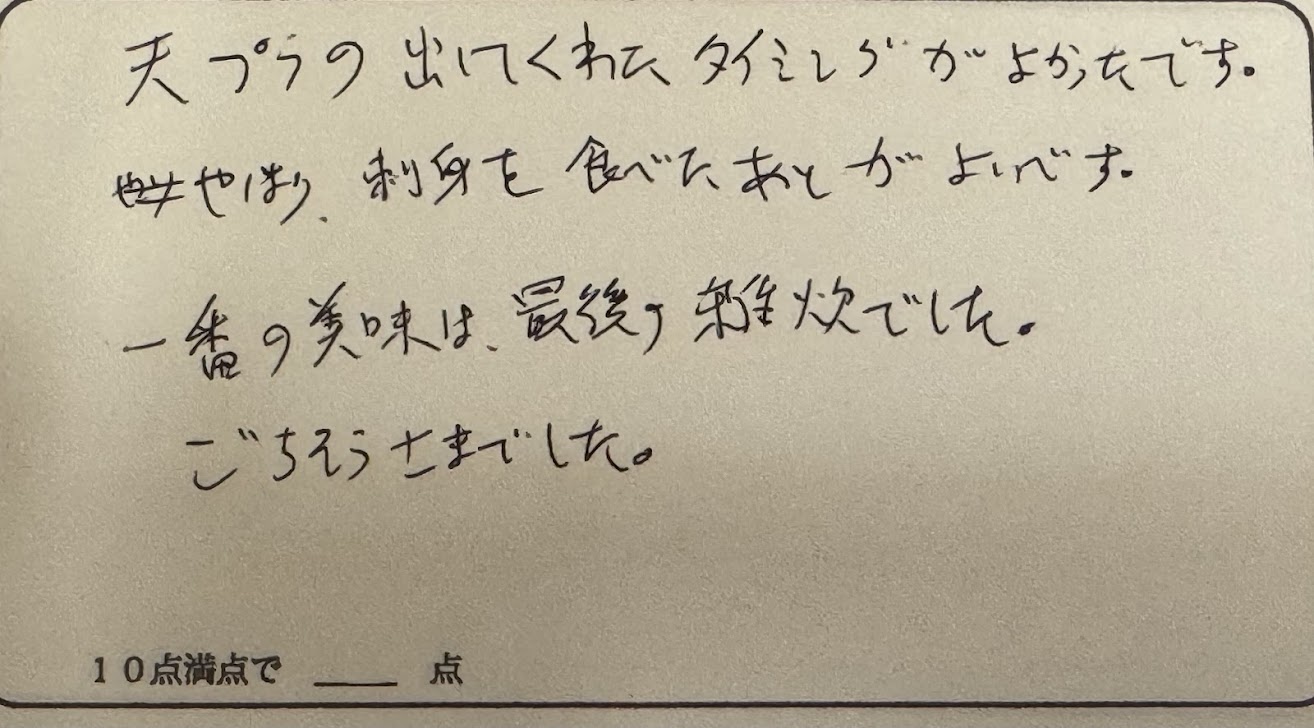 天プラの出してくれたタイミングがよかったです。
やはり、刺身を食べたあとがよいです。
一番の美味は、最後の雑炊でした。
ごちそうさまでした。
10点満点で ____ 点